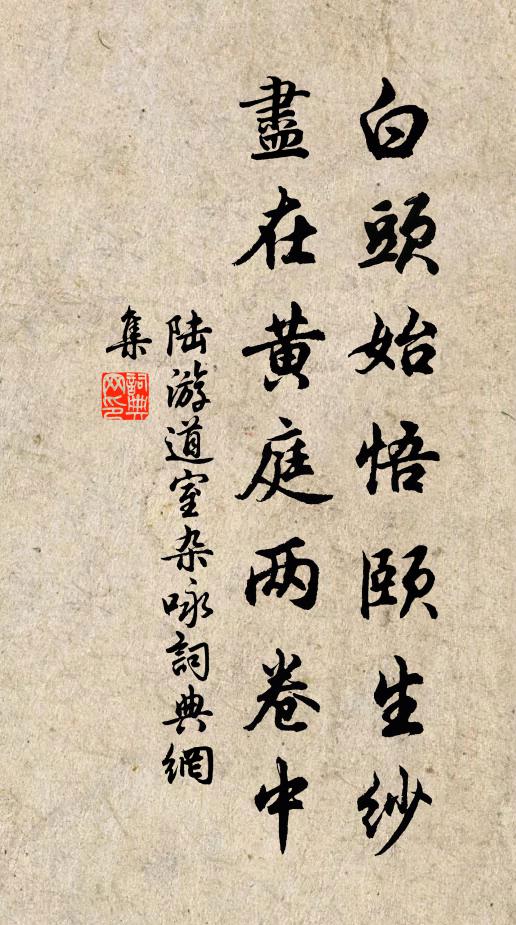 白頭始悟頤生紗
盡在黄庭两卷中
陆游道室杂咏詞典網
集
詞典
网印